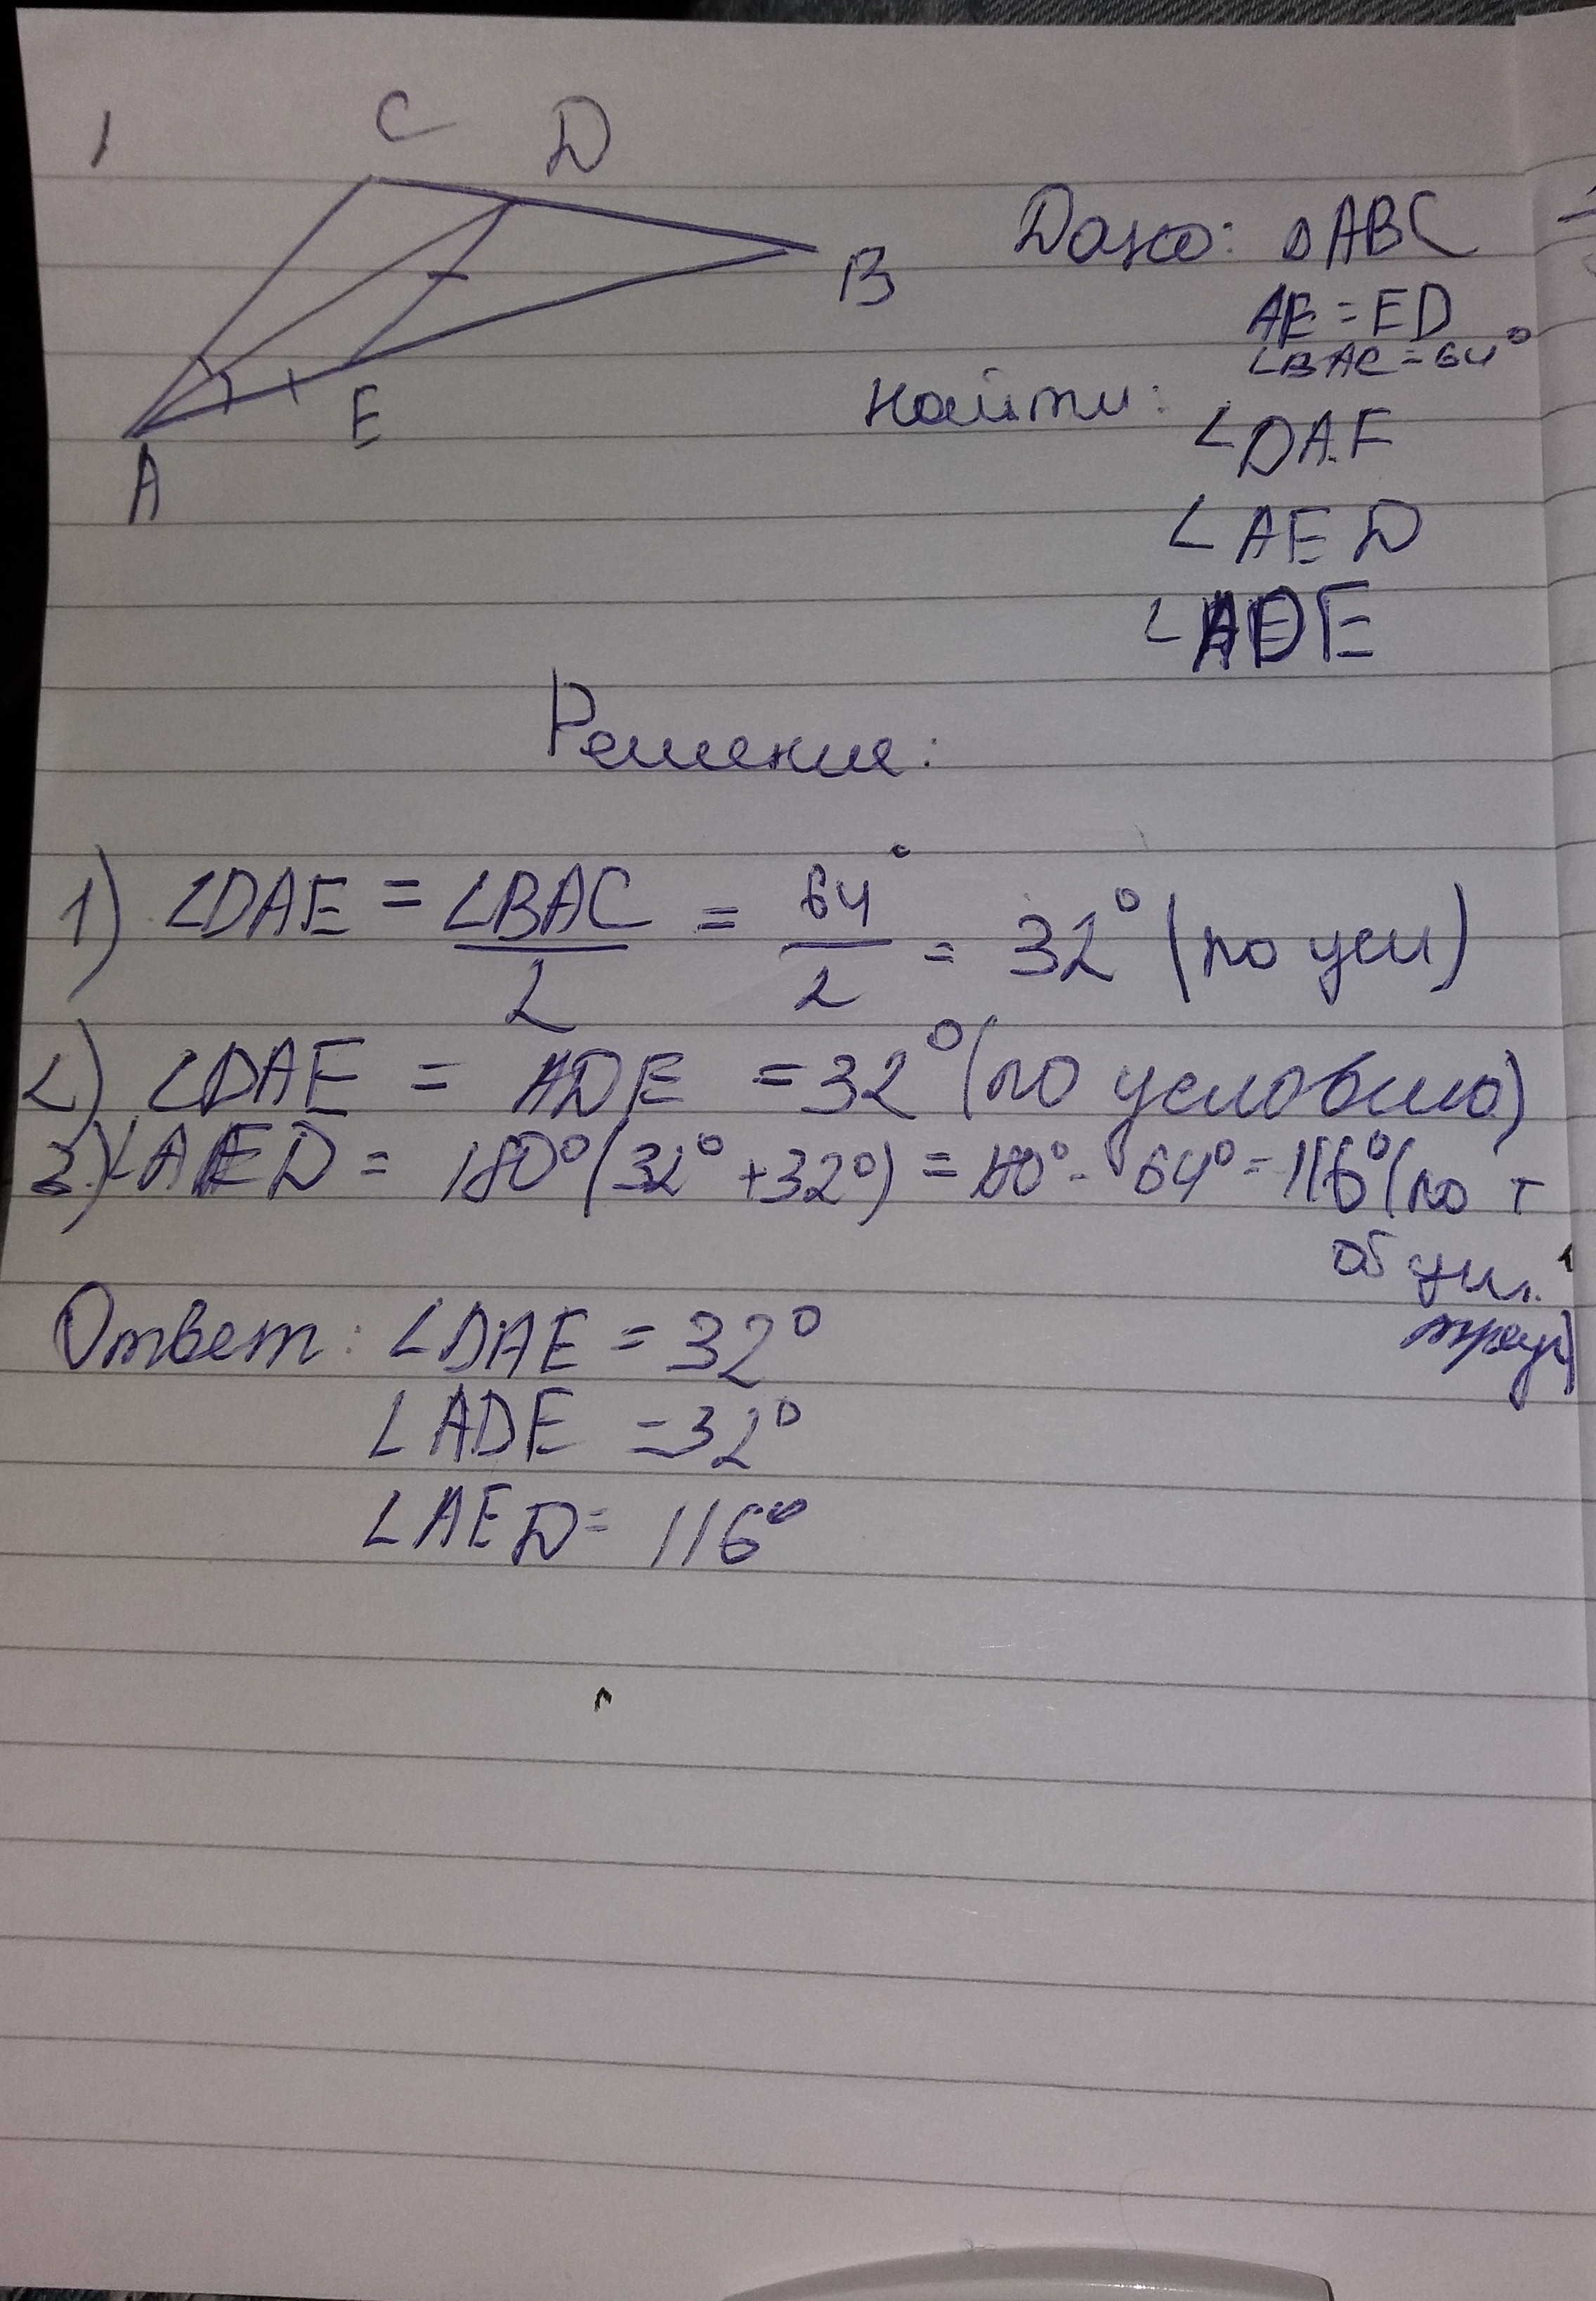 1
C D
B
E
A
Дано: △ABC
AE = ED
∠BAC = 64°
Найти:
∠DAE
∠AED
∠ADE
Решение:
1) ∠DAE = ∠BAC/2 = 64°/2 = 32° (по усл)
2) ∠DAE = ADE = 32° (по условию)
3) ∠AED = 180° (32° + 32°) = 180° - 64° = 116° (по т
треуг)
Ответ: ∠DAE = 32°
∠ADE = 32°
∠AED = 116°